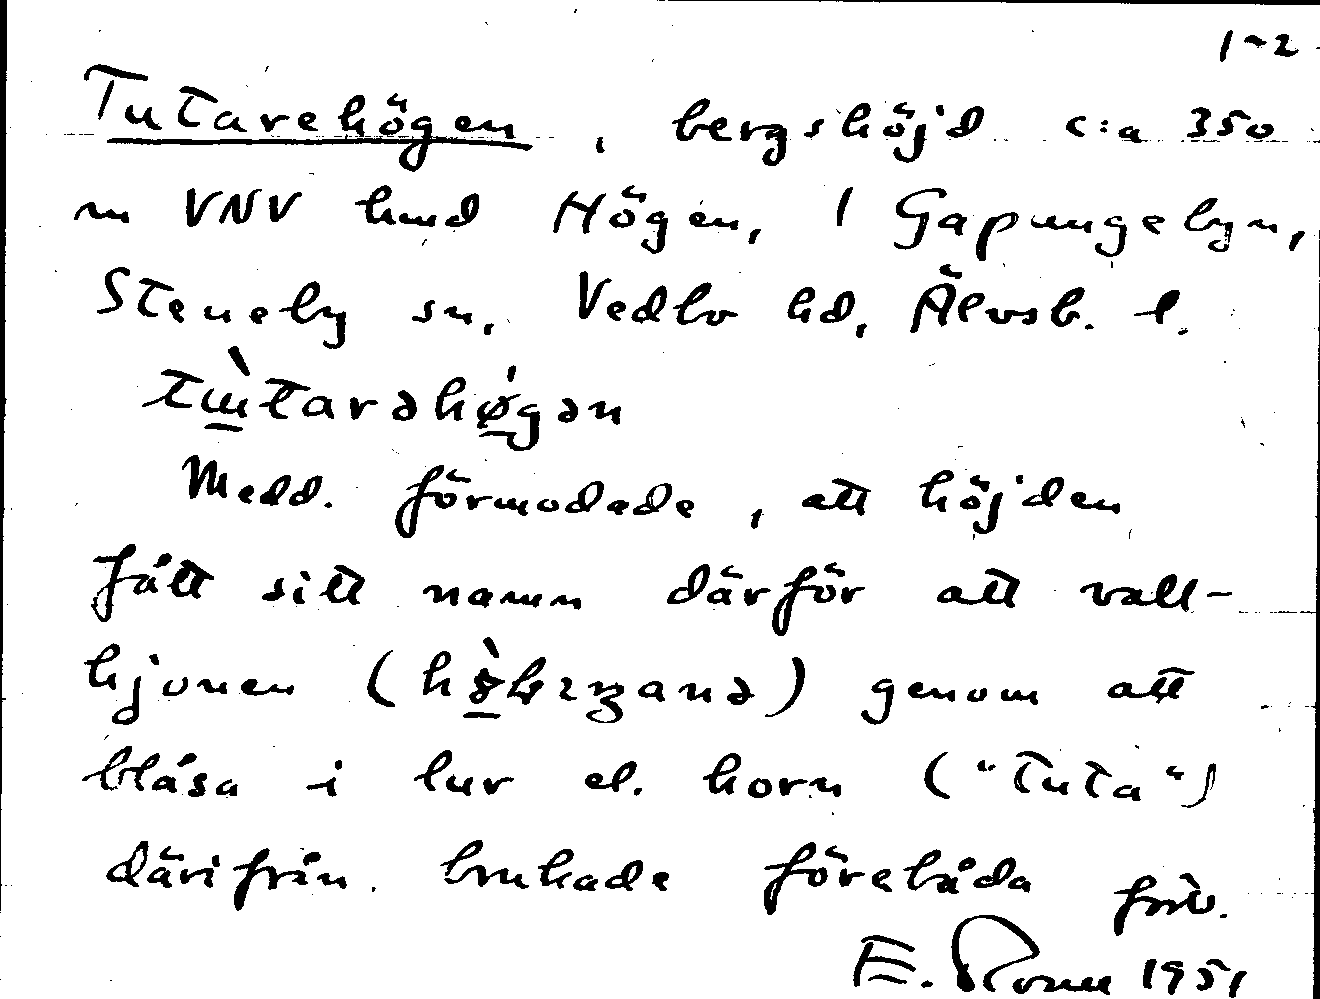 1-2
Tutarehögen, bergshöjd c:a 350
m VNV hmd Högen, 1 Gapungebyn,
Steneby sn, Vedbo hd, Älvsb. l.
Medd. förmodade, att höjden
fått sitt namn därför att vall-
hjonen () genom att
blåsa i lur el. horn ("tuta")
därifrån brukade förebåda
E. 1951